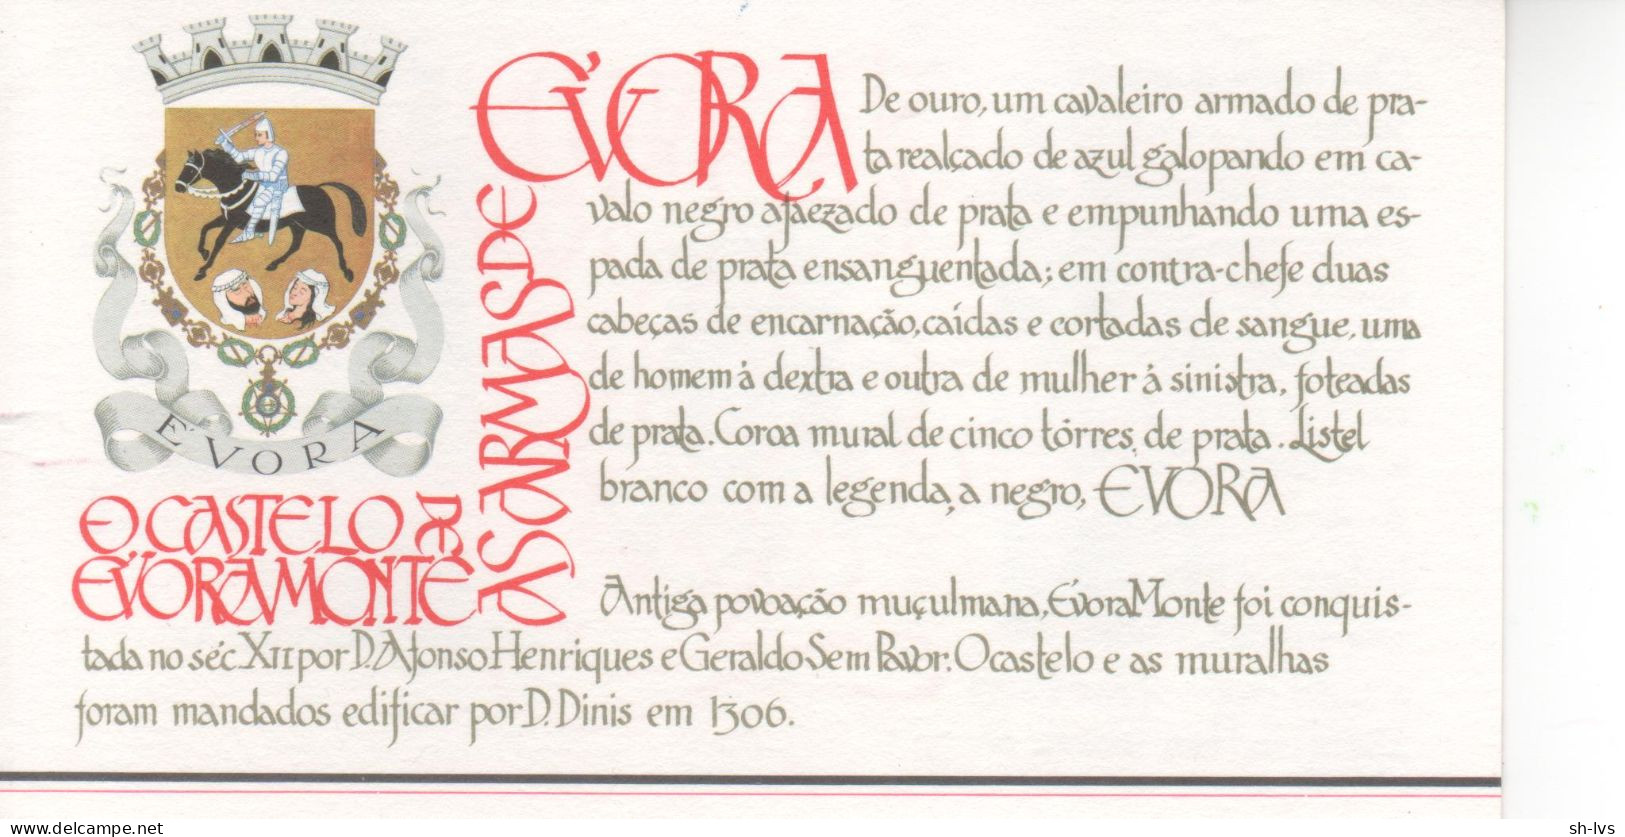 ÉVORA
AS ARMAS DE ÉVORA
De ouro, um cavaleiro armado de pra-
ta realçado de azul galopando em ca-
valo negro ajaezado de prata e empunhando uma es-
pada de prata ensanguentada; em contra-chefe duas
cabeças de encarnação, caídas e cortadas de sangue, uma
de homem à dextra e outra de mulher à sinistra, foteadas
de prata. Coroa mural de cinco tôrres de prata. Listel
branco com a legenda, a negro, EVORA
O CASTELO DE
ÉVORAMONTE
Antiga povoação muçulmana, ÉvoraMonte foi conquis-
tada no séc. XII por D. Afonso Henriques e Geraldo Sem Pavor. O castelo e as muralhas
foram mandados edificar por D. Dinis em 1306.
sh-lvs